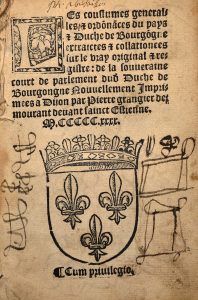 Les coustumes general
les et ordõnãces du pays
et Duche de Bourgõgne
extraictes et collationees
sur le vray original et re
gistre: de la souueraine
court de parlement dud Duche de
Bourgongne Nouuellement Impri
mees a Dijon par Pierre grangier de
mourant deuant sainct Estienne.
M.CCCCC.xxxx.
Cum priuilegio.